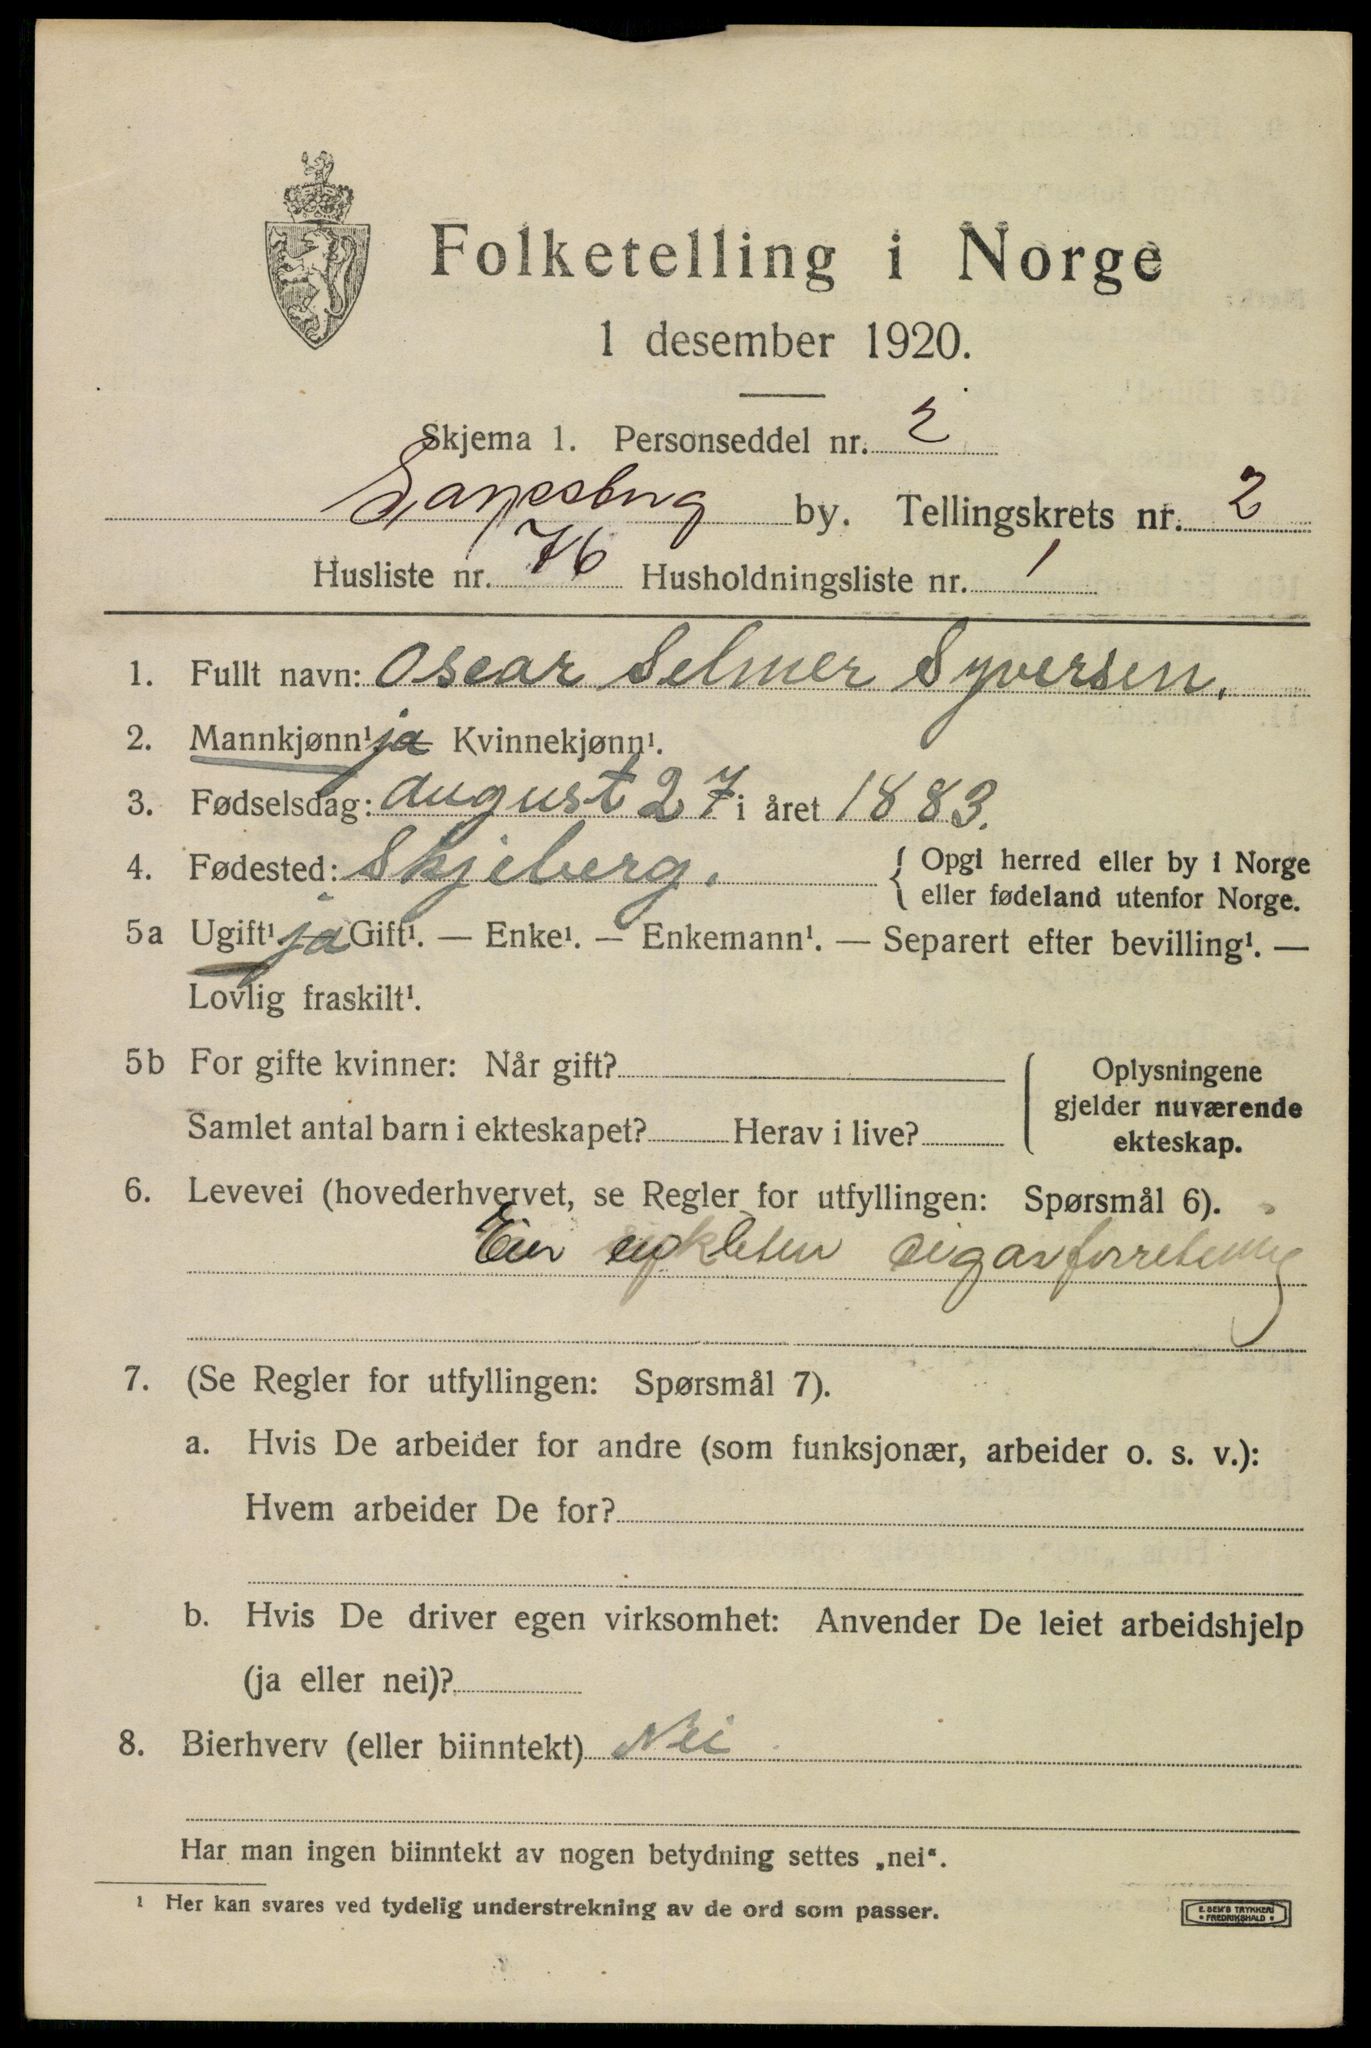 Folketelling i Norge
1 desember 1920.
Skjema 1. Personseddel nr. 2
Sarpsborg by. Tellingskrets nr. 2
Husliste nr. 76 Husholdningsliste nr. 1
1. Fullt navn: Oscar Selmer Syversen.
2. Mannkjønn¹ ja Kvinnekjønn¹.
3. Fødselsdag: august 27 i året 1883.
4. Fødested: Skjeberg. { Opgi herred eller by i Norge
eller fødeland utenfor Norge.
5a Ugift¹ ja Gift¹. — Enke¹. — Enkemann¹. — Separert efter bevilling¹. —
Lovlig fraskilt¹.
5b For gifte kvinner: Når gift?
Samlet antal barn i ekteskapet? Herav i live?
Oplysningene
gjelder nuværende
ekteskap.
6. Levevei (hovederhvervet, se Regler for utfyllingen: Spørsmål 6).
Eier cigarforretning
7. (Se Regler for utfyllingen: Spørsmål 7).
a. Hvis De arbeider for andre (som funksjonær, arbeider o. s. v.):
Hvem arbeider De for?
b. Hvis De driver egen virksomhet: Anvender De leiet arbeidshjelp
(ja eller nei)?
8. Bierhverv (eller biinntekt) Nei
Har man ingen biinntekt av nogen betydning settes „nei“.
¹ Her kan svares ved tydelig understrekning av de ord som passer.
E. SEM'S TRYKKERI
• FREDRIKSHALD •